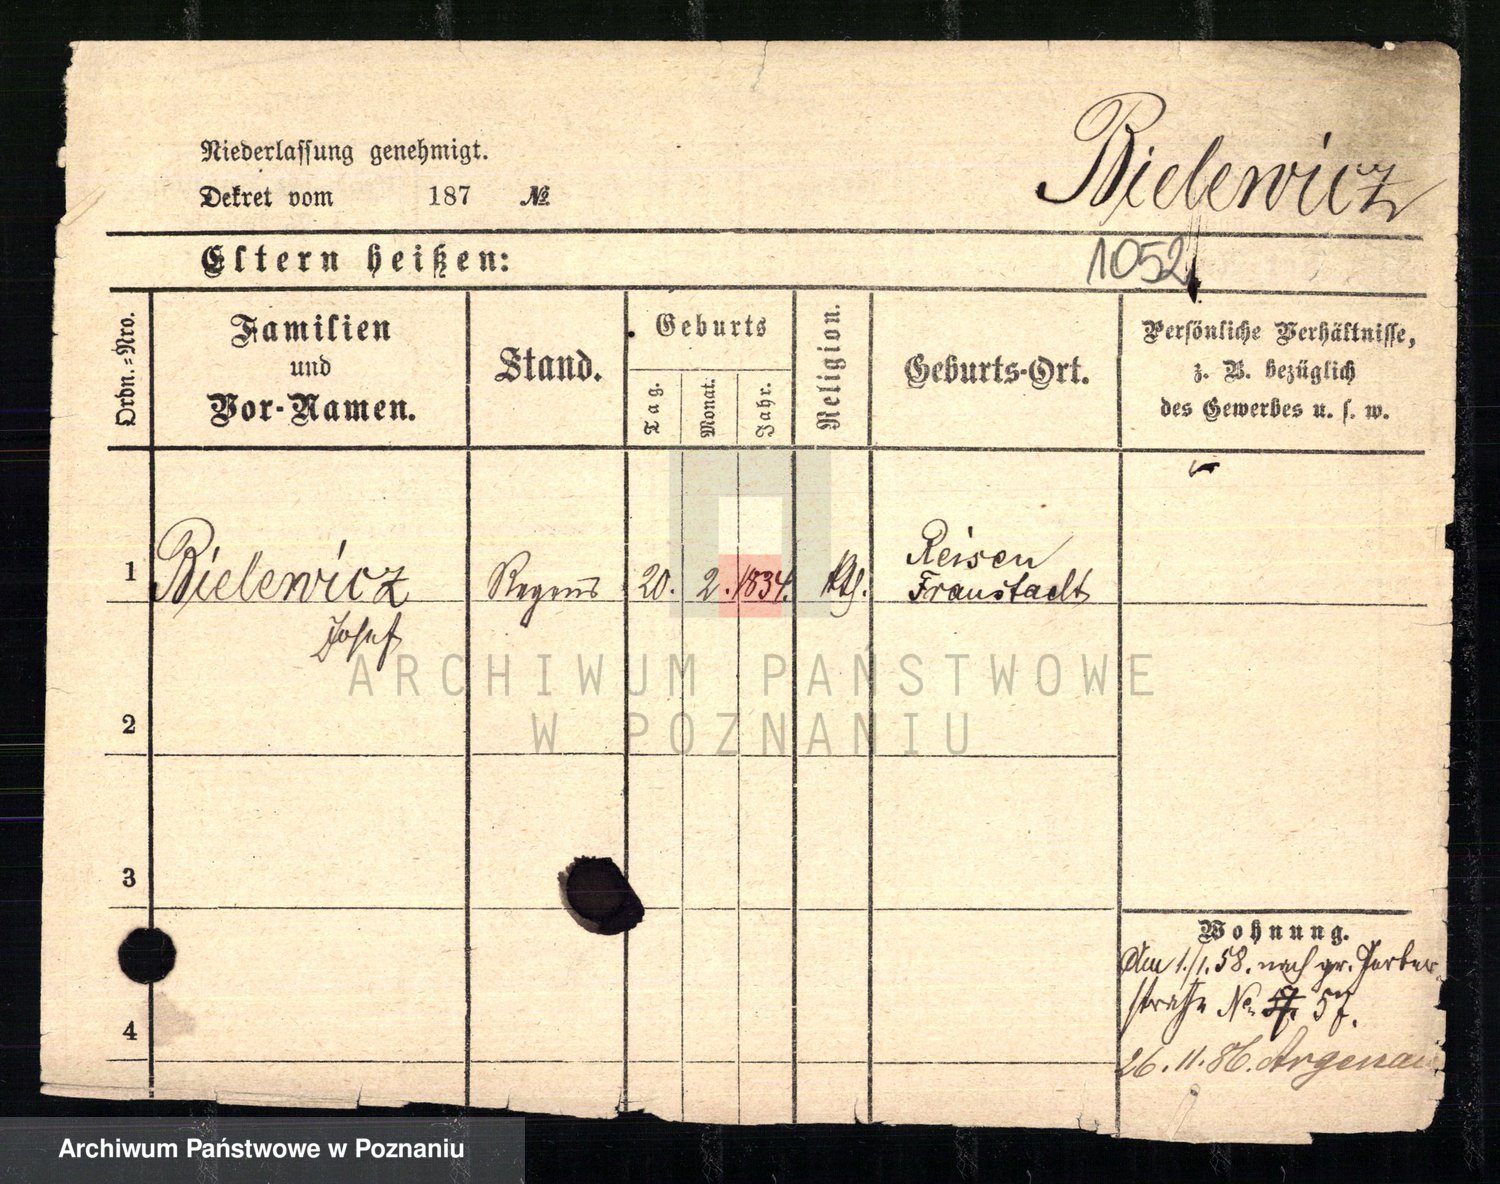 Bielewicz
Niederlassung genehmigt.
Dekret vom 187 №
Eltern heißen:
1052
Ordn.-Nro.
Familien
und
Vor-Namen.
Stand.
Geburts
Tag.
Monat.
Jahr.
Religion.
Geburts-Ort.
Persönliche Verhältnisse,
z. B. bezüglich
des Gewerbes u. s. w.
1
Bielewicz
Josef
20. 2. 1834.
Kth.
Reisen
Fraustadt
2
3
4
Wohnung.
1./1. 58. nach gr. Gerber
straße No 57.
26. 11. 86. Argenau
ARCHIWUM PAŃSTWOWE
W POZNANIU
Archiwum Państwowe w Poznaniu